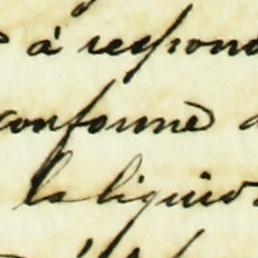 à respond
conforme
la liquid